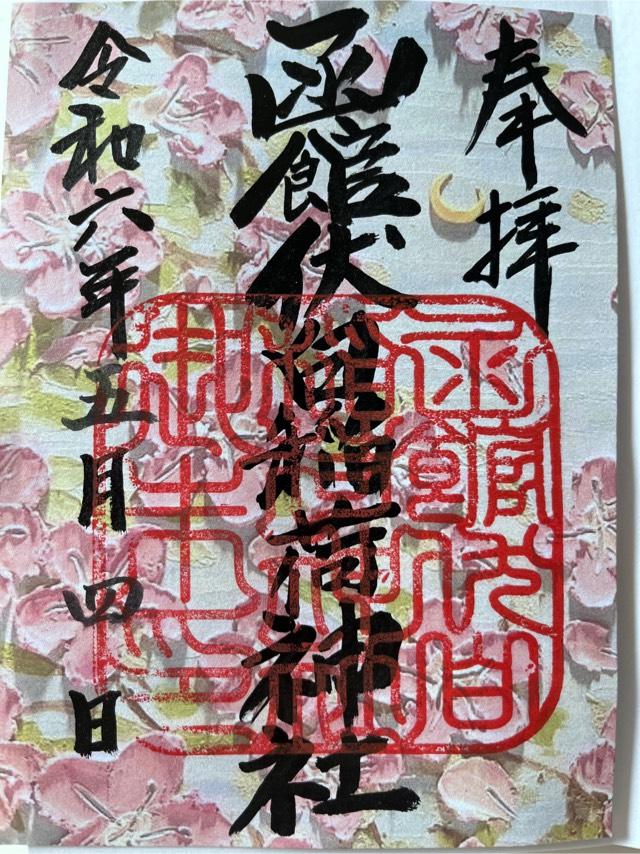 奉拝
函館伏見稲荷神社
令和六年五月四日